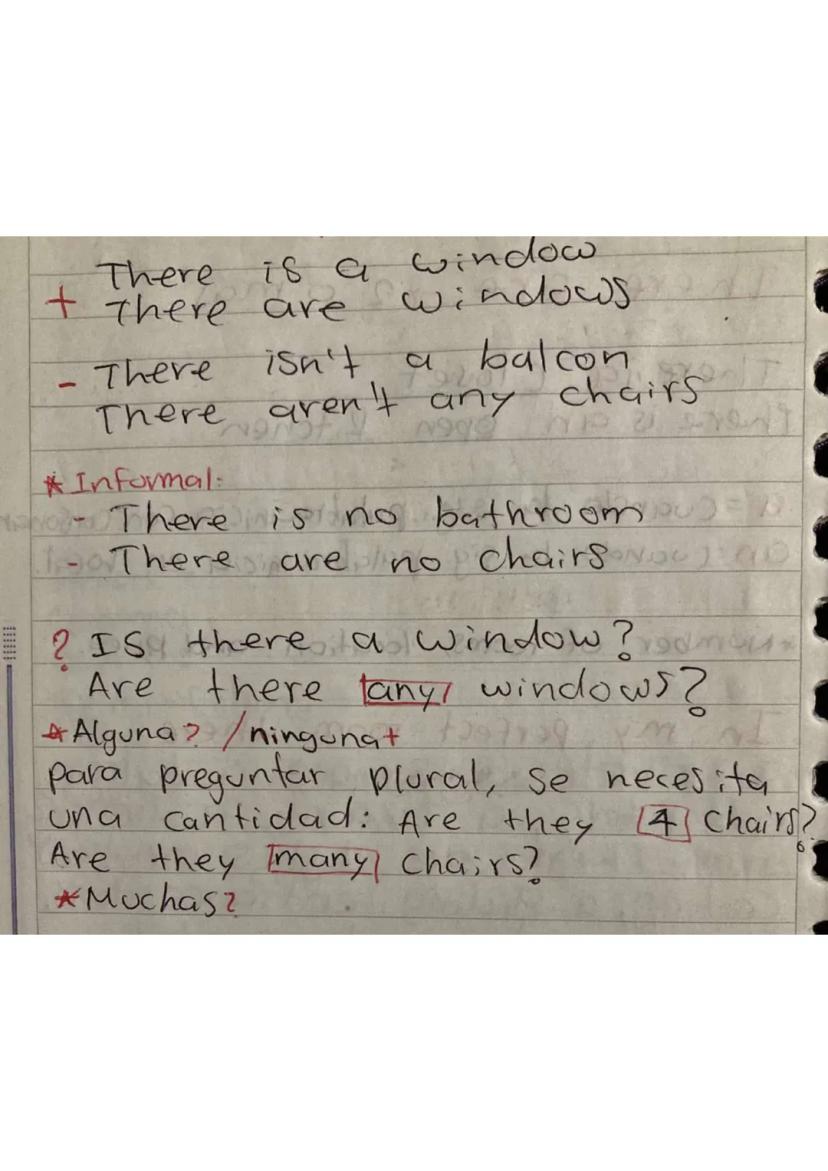 There is a window
+ There are windows
- There isn't a balcon
There aren't any chairs
* Informal:
- There is no bathroom
- There are no chairs
? Is there a window?
Are there any windows?
* Alguna? / ninguna +
para preguntar plural, se necesita
una cantidad: Are they 4 chairs?
Are they many chairs?
* Muchas?